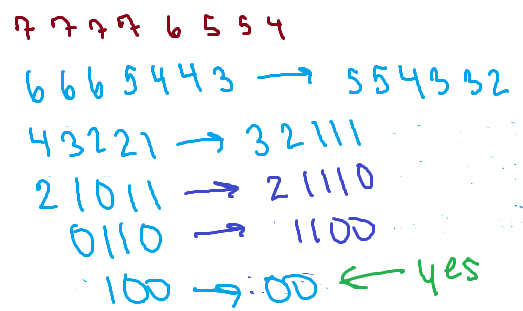 7 7 7 7 6 5 5 4
6 6 6 5 4 4 3 → 5 5 4 3 3 2
4 3 2 2 1 → 3 2 1 1 1
2 1 0 1 1 → 2 1 1 1 0
0 1 1 0 → 1 1 0 0
1 0 0 → 0 0 ← yes